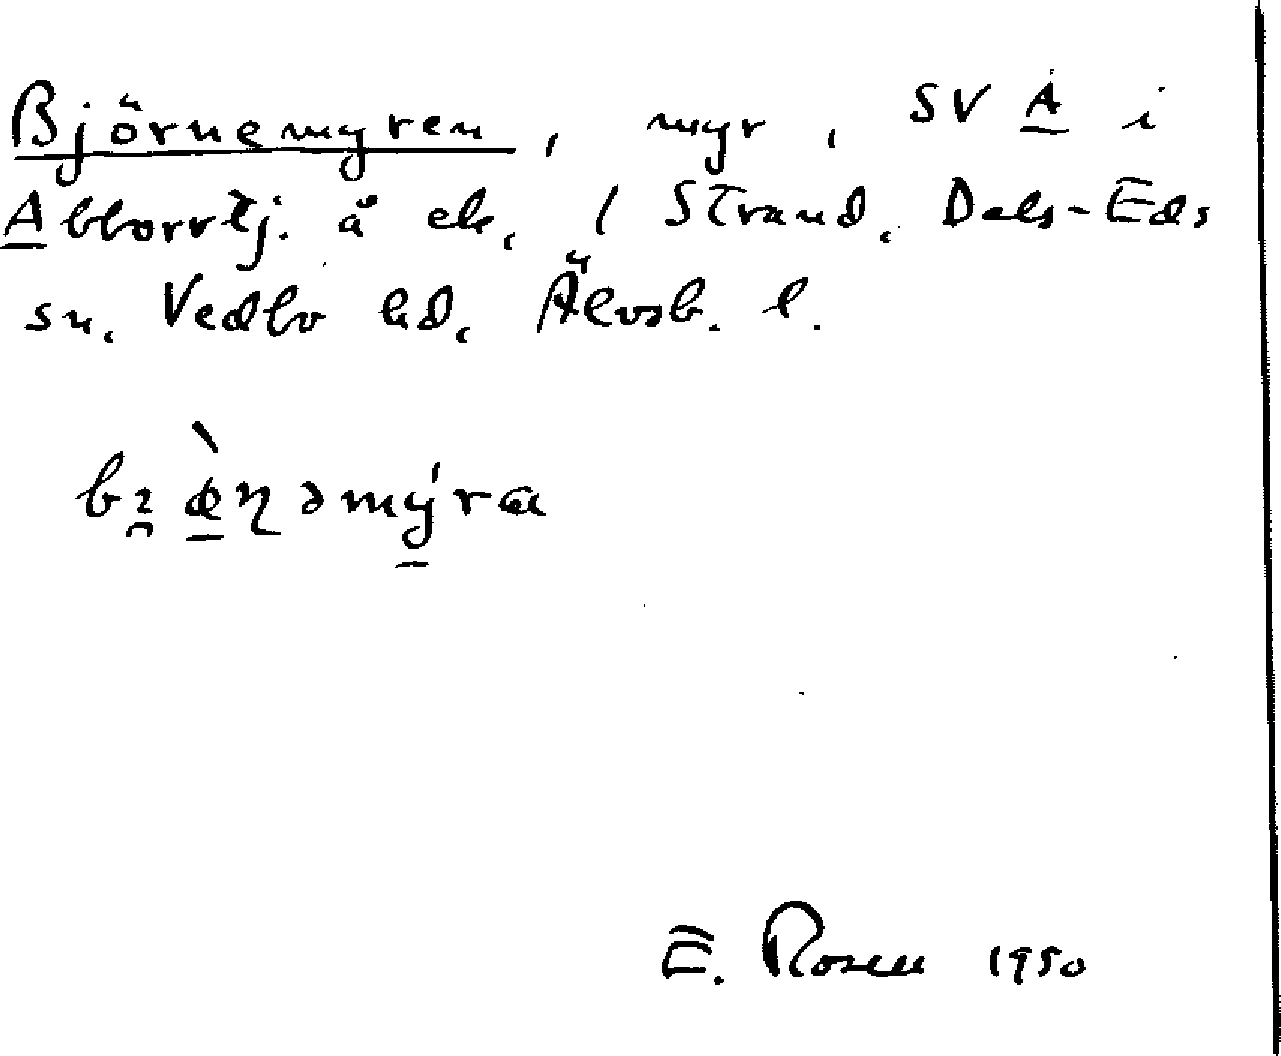 Björnemyren, myr, SV A i
Abborrtj. å ek. / Strand. Dals-Eds
sn. Vedbo hd. Älvsb. l.
E. Rosen 1950